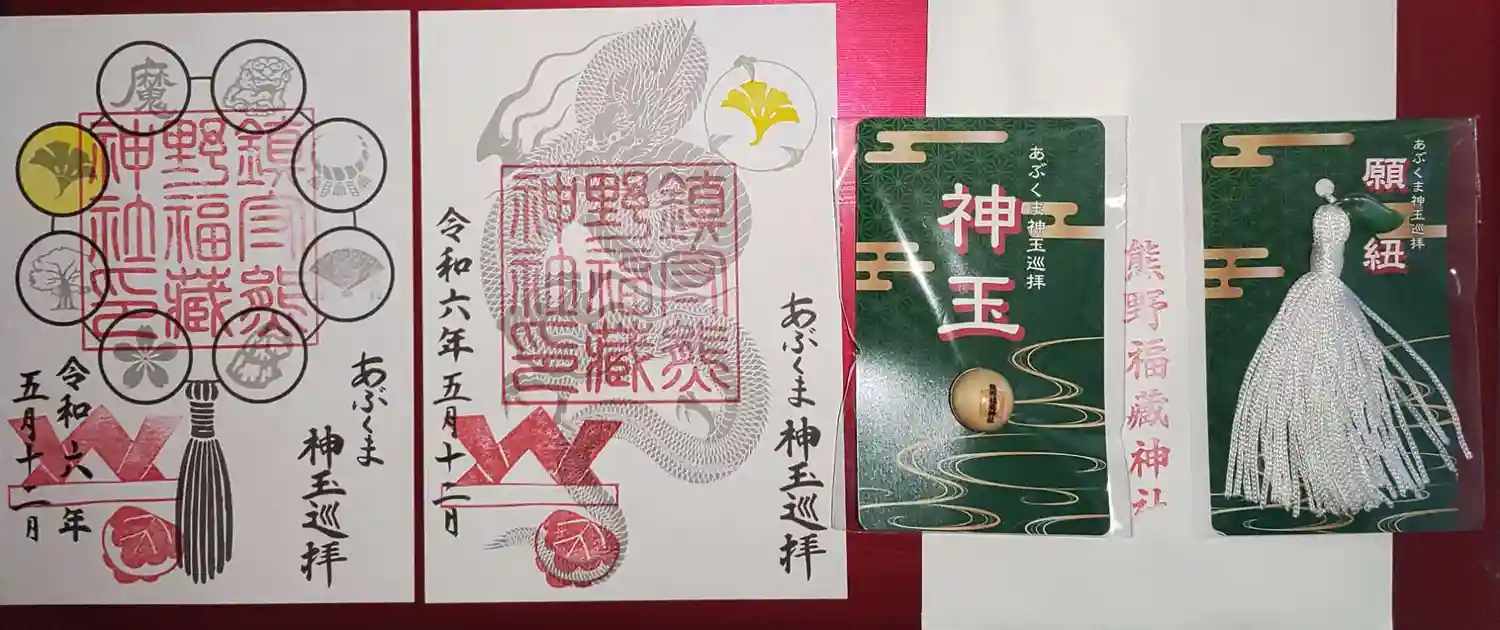 魔
鎮守熊
野福藏
神社印
あぶくま
神玉巡拝
令和六年
五月十二日
鎮守熊
野福藏
神社印
あぶくま神玉巡拝
令和六年五月十二日
あぶくま神玉巡拝
神玉
熊野福藏神社
あぶくま神玉巡拝
願紐